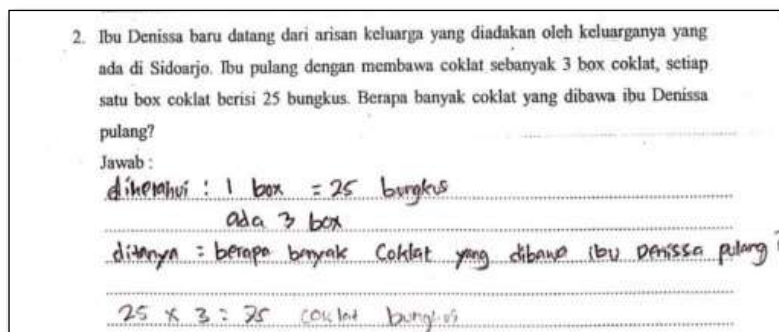 2. Ibu Denissa baru datang dari arisan keluarga yang diadakan oleh keluarganya yang
ada di Sidoarjo. Ibu pulang dengan membawa coklat sebanyak 3 box coklat, setiap
satu box coklat berisi 25 bungkus. Berapa banyak coklat yang dibawa ibu Denissa
pulang?
Jawab :
diketahui : 1 box = 25 bungkus
ada 3 box
ditanya = berapa banyak Coklat yang dibawa ibu Denissa pulang ?
25 x 3 = 75 coklat bungkus